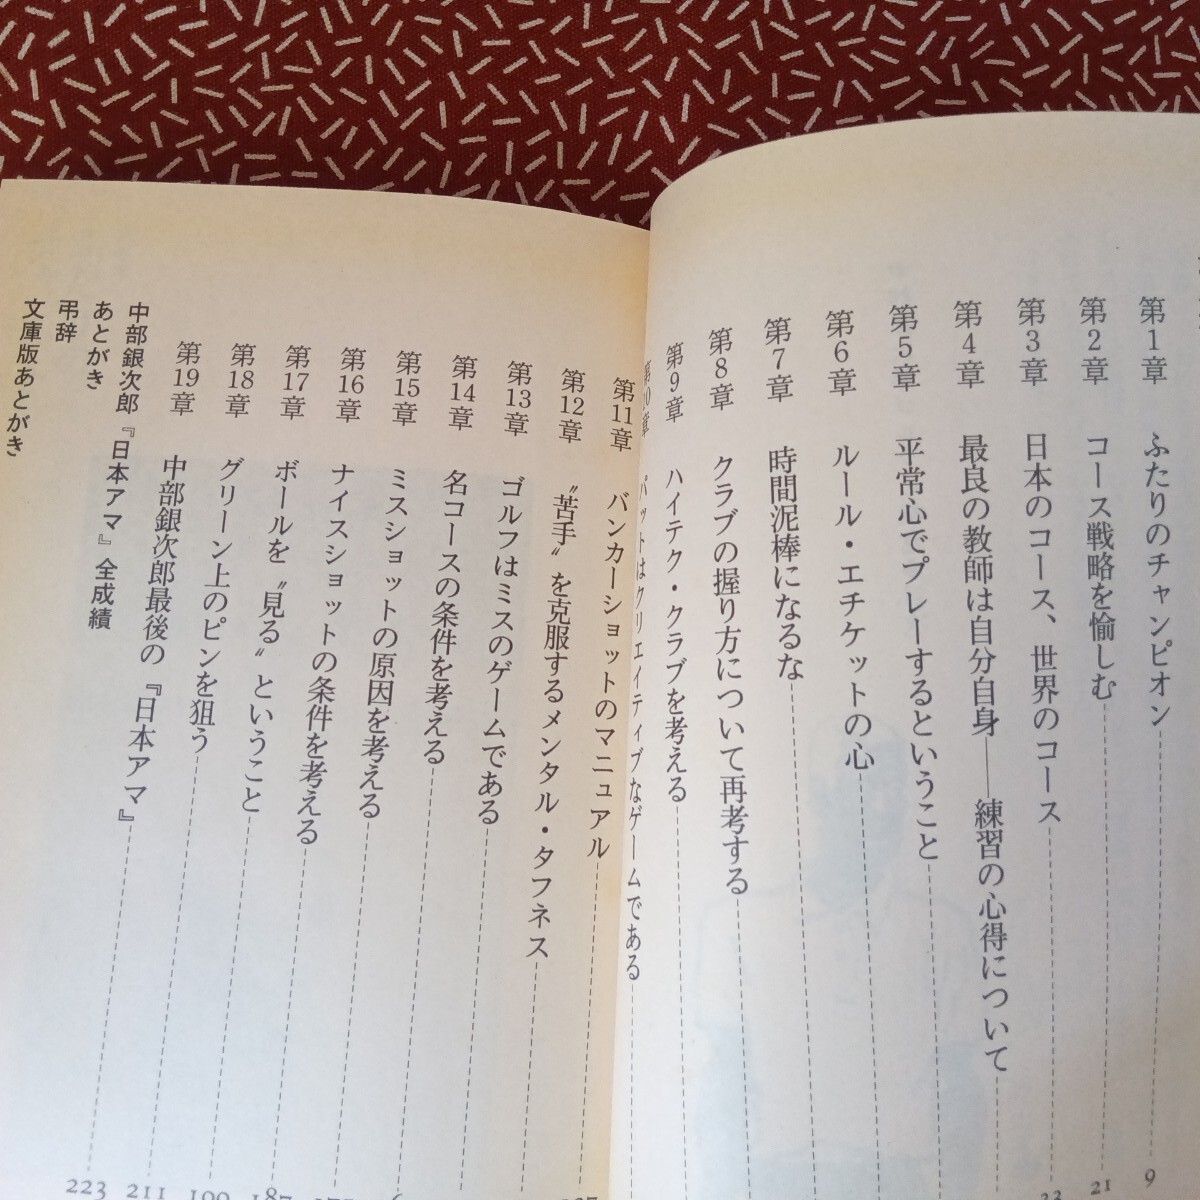 第1章 ふたりのチャンピオン 9
第2章 コース戦略を愉しむ 21
第3章 日本のコース、世界のコース
第4章 最良の教師は自分自身――練習の心得について
第5章 平常心でプレーするということ
第6章 ルール・エチケットの心
第7章 時間泥棒になるな
第8章 クラブの握り方について再考する
第9章 ハイテク・クラブを考える
第10章 パットはクリエイティブなゲームである
第11章 バンカーショットのマニュアル
第12章 〝苦手〟を克服するメンタル・タフネス
第13章 ゴルフはミスのゲームである
第14章 名コースの条件を考える
第15章 ミスショットの原因を考える
第16章 ナイスショットの条件を考える
第17章 ボールを〝見る〟ということ 187
第18章 グリーン上のピンを狙う 199
第19章 中部銀次郎最後の『日本アマ』 211
中部銀次郎『日本アマ』全成績 223
あとがき
弔辞
文庫版あとがき